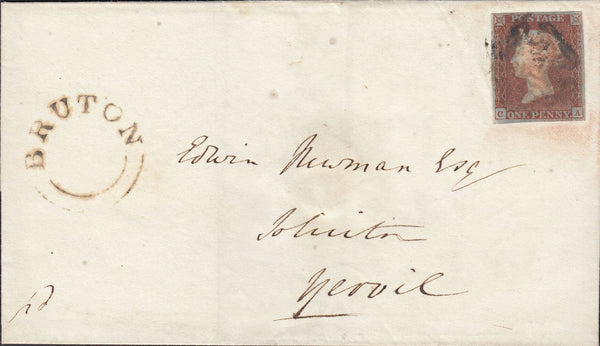 POSTAGE
C ONE PENNY A
BRUTON
Edwin Newman Esq
Solicitor
Yeovil
pd